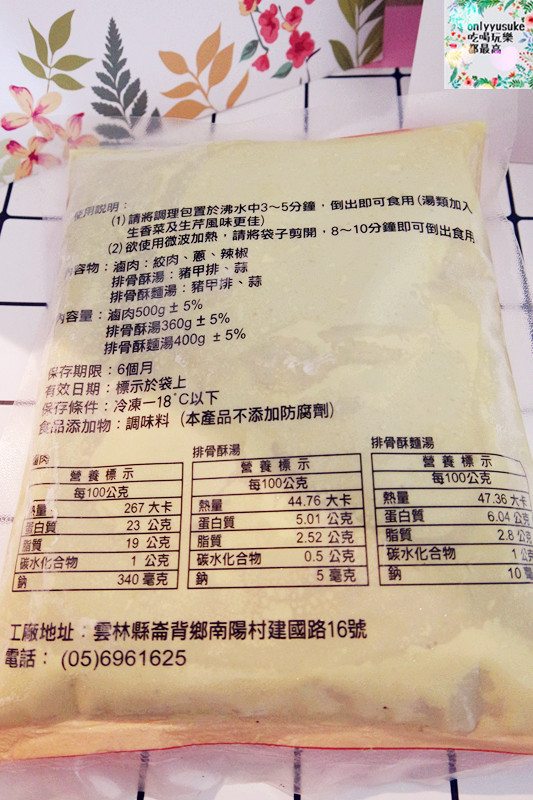 onlyyusuke
吃喝玩樂
都最高
使用說明：
(1)請將調理包置於沸水中3～5分鐘，倒出即可食用(湯類加入
生香菜及生芹風味更佳)
(2)欲使用微波加熱，請將袋子剪開，8～10分鐘即可倒出食用
內容物：滷肉：絞肉、蔥、辣椒
排骨酥湯：豬甲排、蒜
排骨酥麵湯：豬甲排、蒜
內容量：滷肉500g±5%
排骨酥湯360g±5%
排骨酥麵湯400g±5%
保存期限：6個月
有效日期：標示於袋上
保存條件：冷凍－18°C以下
食品添加物：調味料 (本產品不添加防腐劑)
滷肉
營養標示
每100公克
熱量 267 大卡
蛋白質 23 公克
脂質 19 公克
碳水化合物 1 公克
鈉 340 毫克
排骨酥湯
營養標示
每100公克
熱量 44.76 大卡
蛋白質 5.01 公克
脂質 2.52 公克
碳水化合物 0.5 公克
鈉 5 毫克
排骨酥麵湯
營養標示
每100公克
熱量 47.36 大卡
蛋白質 6.04 公克
脂質 2.8 公克
碳水化合物 1 公克
鈉 10 毫
工廠地址：雲林縣崙背鄉南陽村建國路16號
電話： (05)6961625